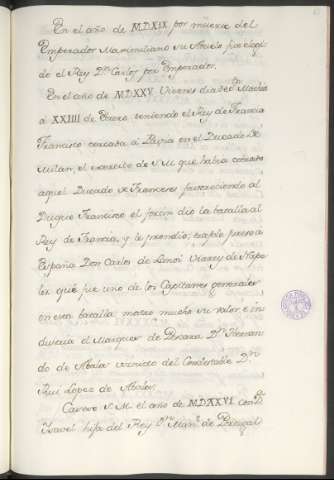 En el año de MDXIX por muerte del
Emperador Maximiliano su Abuelo fue elegi
do el Rey Dn Carlos por Emperador.
En el año de MDXXV Viernes dia de Sn Mathia
a XXIIII de Febrero teniendo el Rey de Francia
Francisco cercada à Pavia en el Ducado de
Milan, el exercito de S M que havia
aquel Ducado de Franceses favoreciendo al
Duque Francisco el forcia dio la batalla al
Rey de Francia, y le prendio; traxole preso a
España Don Carlos de Lenoi Virrey de Napo
les que fue uno de los Capitanes generales
en esta batalla mostro mucho su valor, e in
dustria el Marques de Pescara Dn Hernan
do de Abalos visnieto del Condestable Dn
Rui Lopez de Abalos
Casose S M. el año de MDXXVI con Dª
Ysavel hija del Rey Dn Manl de Portugal